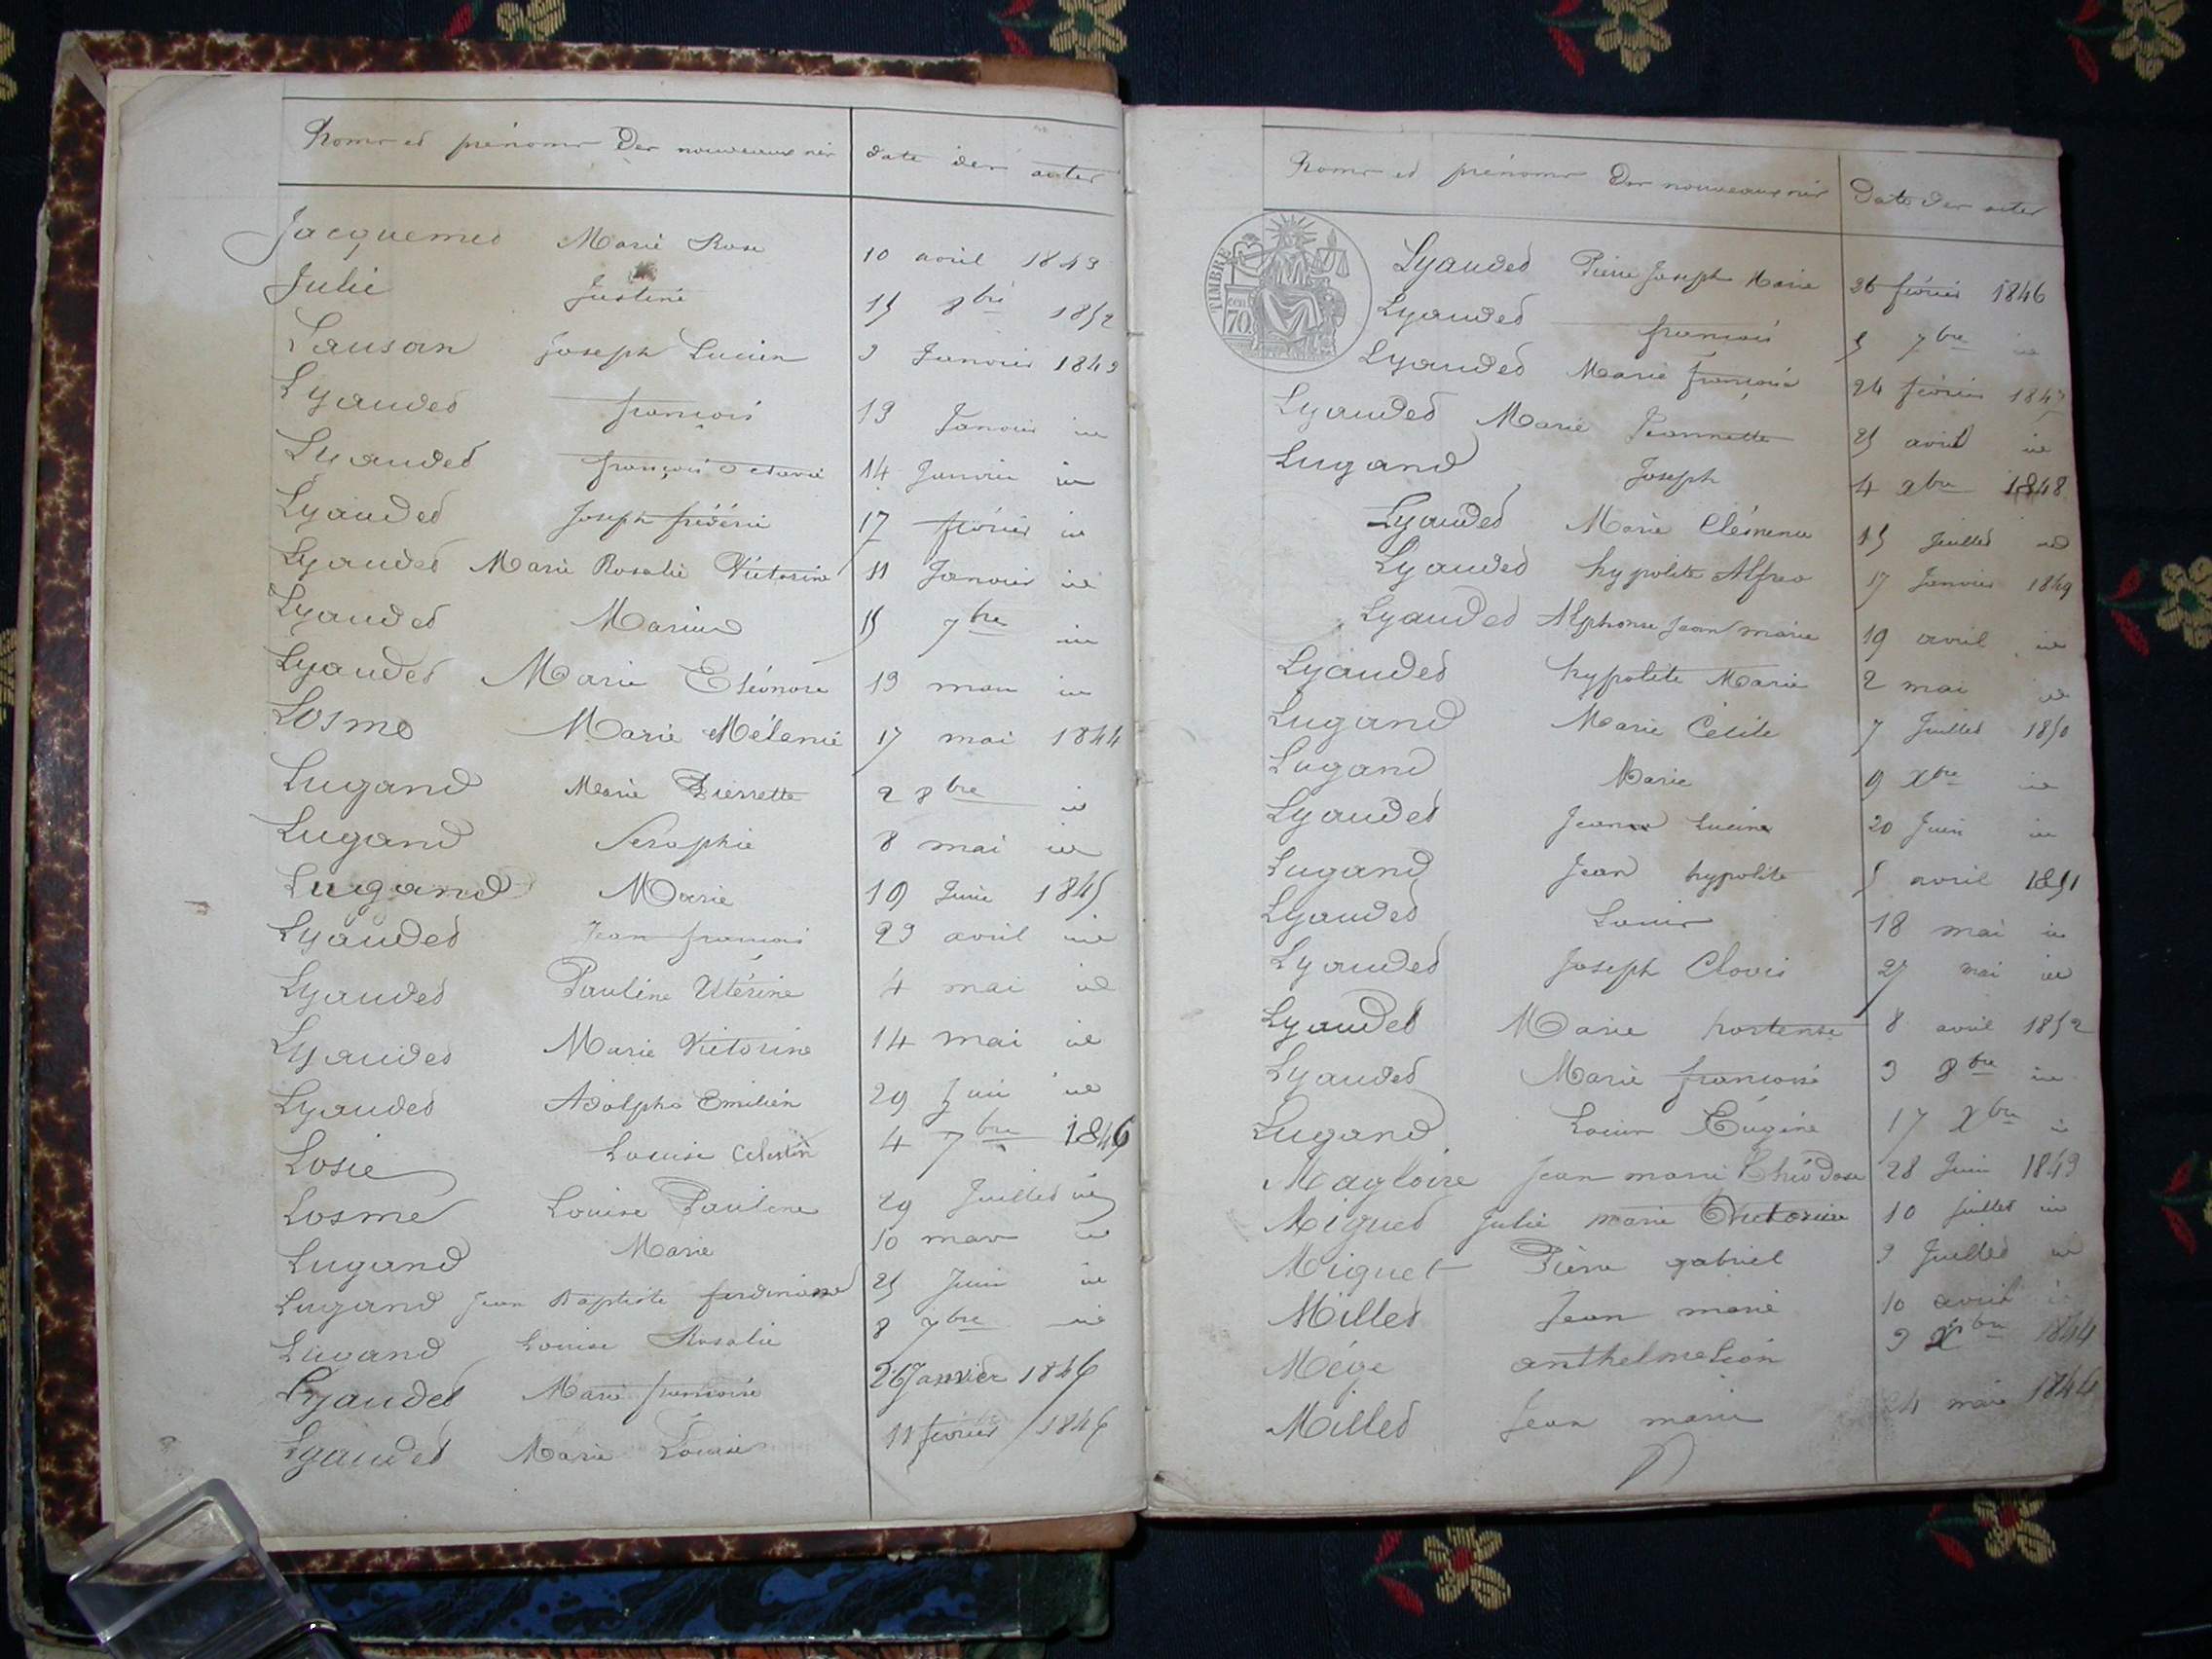 Noms et prénoms Des nouveaux nés date des actes
Jacquemet Marie Rose 10 avril 1843
Julie Justine 15 8bre 1852
Lausan Joseph Lucien 3 Janvier 1843
Lyaudet françois 13 Janvier id
Lyaudet françois Octavie 14 Janvier id
Lyaudet Joseph frédéric 17 février id
Lyaudet Marie Rosalie Victorine 11 Janvier id
Lyaudet Marius 15 7bre id
Lyaudet Marie Eléonore 13 mars id
Losme Marie Mélanie 17 mai 1844
Lugand Marie Pierrette 2 8bre id
Lugand Séraphie 8 mai id
Lugand Marie 10 Juin 1845
Lyaudet Jean françois 23 avril id
Lyaudet Pauline Utérine 4 mai id
Lyaudet Marie Victorine 14 mai id
Lyaudet Adolphe Emilien 29 Juin id
Losie Louise Celestin 4 7bre 1846
Losme Louise Pauline 29 Juillet id
Lugand Marie 10 mars id
Lugand Jean Baptiste ferdinand 25 Juin id
Lugand Louise Rosalie 8 7bre id
Lyaudet Marie françoise 26 Janvier 1846
Lyaudet Marie Louise 11 février 1846
Noms et prénoms Des nouveaux nés Date Des actes
TIMBRE
70
Lyaudet Pierre Joseph Marie 26 février 1846
Lyaudet françois 5 7bre id
Lyaudet Marie françoise 24 février 1847
Lyaudet Marie Jeannette 25 avril id
Lugand Joseph 4 xbre 1848
Lyaudet Marie Clémence 15 Juillet id
Lyaudet hypolite Alfred 17 Janvier 1849
Lyaudet Alphonse Jean marie 19 avril id
Lyaudet hypolite Marie 2 mai id
Lugand Marie Cécile 7 Juillet 1850
Lugand Marie 9 Xbre id
Lyaudet Jeanne Lucine 20 Juin id
Lugand Jean hypolite 5 avril 1851
Lyaudet Louis 18 mai id
Lyaudet Joseph Clovis 27 mai id
Lyaudet Marie hortense 8 avril 1852
Lyaudet Marie françoise 3 8bre id
Lugand Louis Eugène 17 Xbre id
Magloire Jean marie Théodose 28 Juin 1843
Miguet Julie marie Victorine 10 Juillet id
Miguet Pierre gabriel 3 Juillet id
Millet Jean marie 10 avril id
Mége anthelme Léon 3 Xbre 1844
Millet Jean marie 24 mai 1844